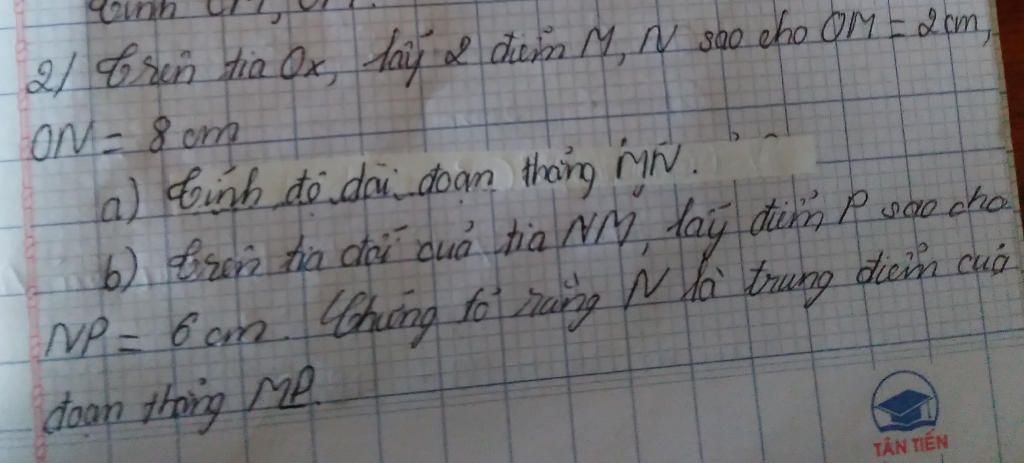 2) Trên tia Ox, lấy 2 điểm M, N sao cho OM = 2cm,
ON = 8 cm
a) Tính độ dài đoạn thẳng MN.
b) Trên tia đối của tia NM, lấy điểm P sao cho
NP = 6 cm. Chứng tỏ rằng N là trung điểm của
đoạn thẳng MP.
TÂN TIẾN